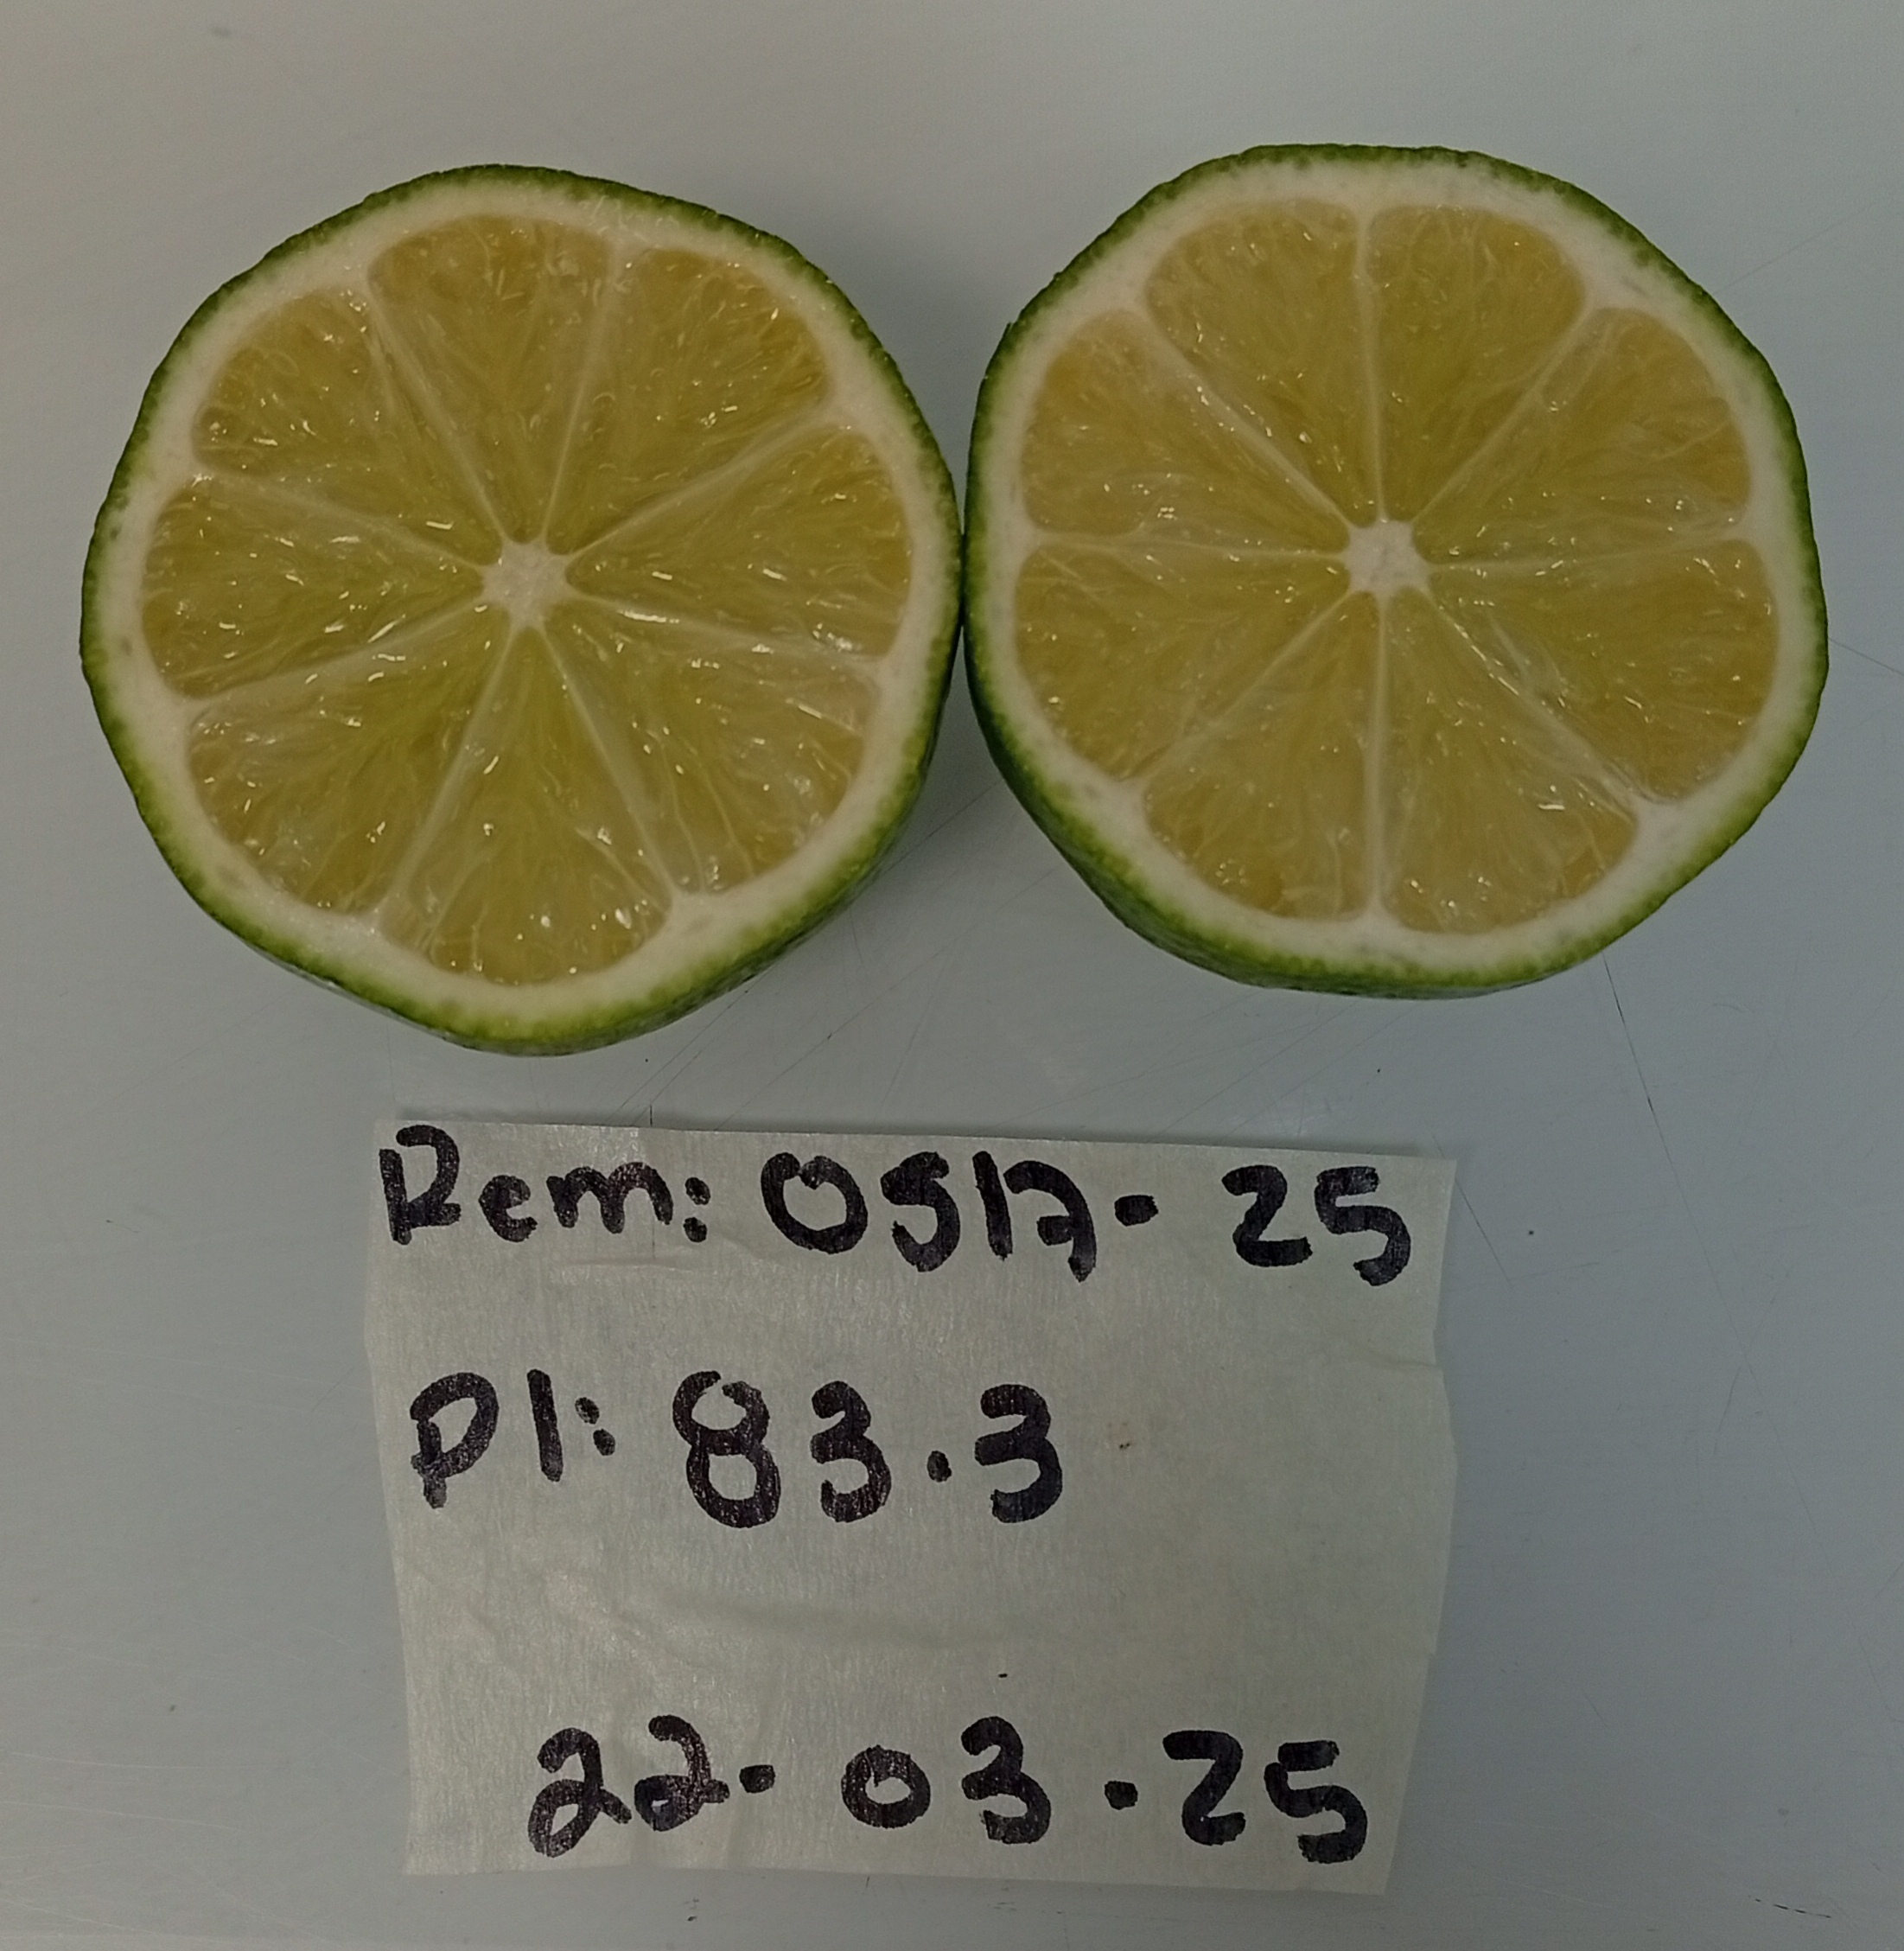 Rem: 0517-25
Pl: 83.3
22-03-25